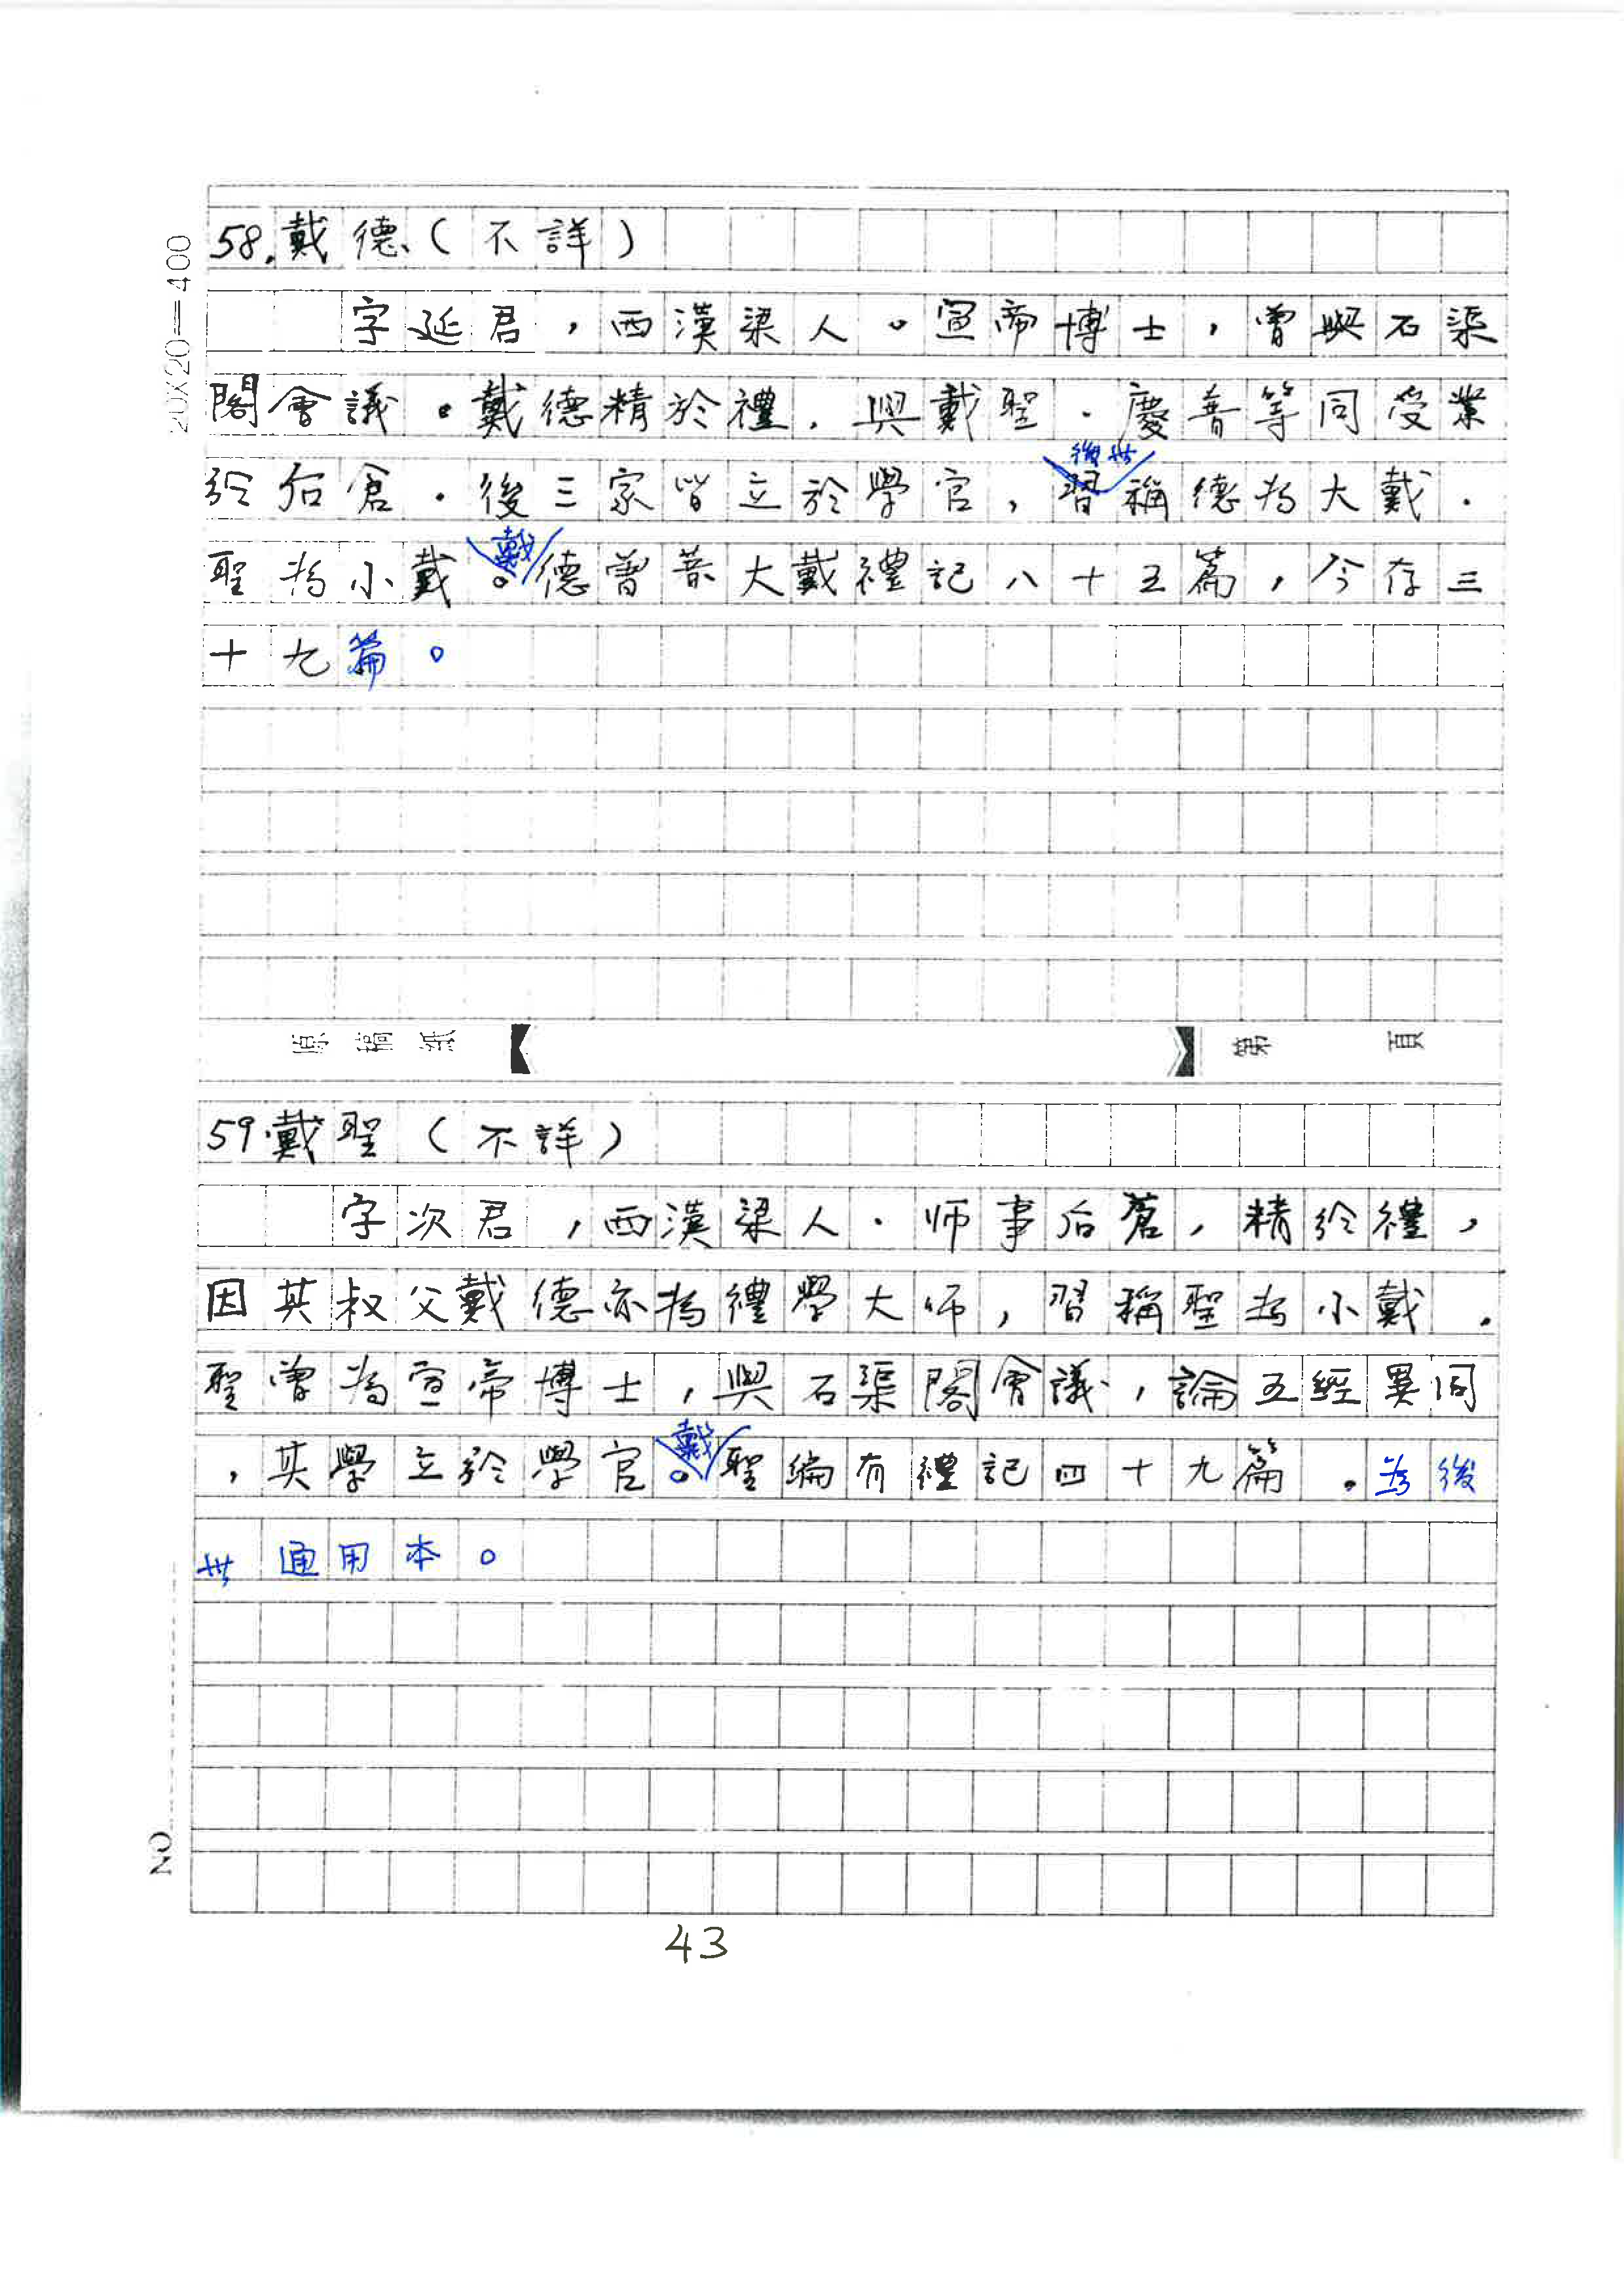 20X20=400
58.戴德(不詳)
字延君,西漢梁人。宣帝博士,曾與石渠
閣會議。戴德精於禮.與戴聖.慶普等同受業
於后倉.後三家皆立於學官,後世習稱德為大戴.
聖為小戴。戴德曾著大戴禮記八十五篇,今存三
十九篇。
原稿紙 第 頁
59.戴聖(不詳)
字次君,西漢梁人.师事后蒼,精於禮,
因其叔父戴德亦為禮學大师,習稱聖為小戴.
聖曾為宣帝博士,與石渠閣會議,論五經異同
,其學立於學官。戴聖編有禮記四十九篇.為後
世通用本。
NO
43